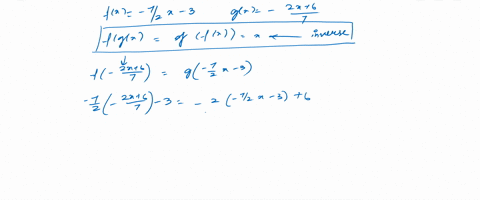 f(x) = -7/2 x - 3 g(x) = - (2x+6)/7
f(g(x)) = g(f(x)) = x ← inverse
f(- (2x+6)/7) = g(-7/2 x - 3)
-7/2 (- (2x+6)/7) - 3 = - 2 (-7/2 x - 3) + 6